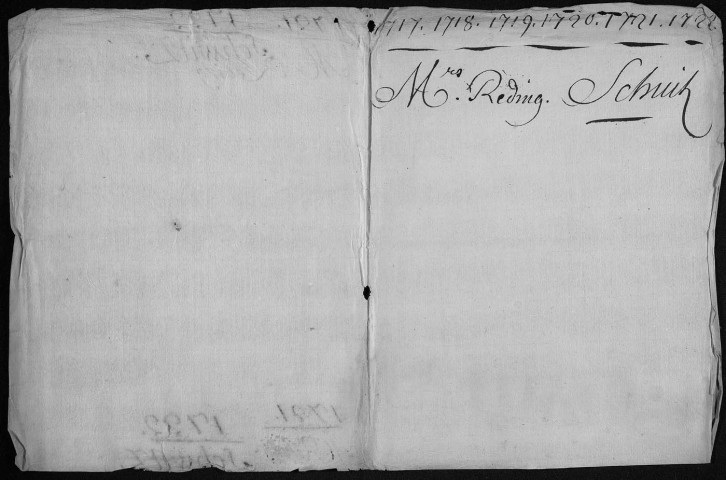 1717. 1718. 1719. 1720. 1721. 1722.
Mrs. Reding. Schuitz